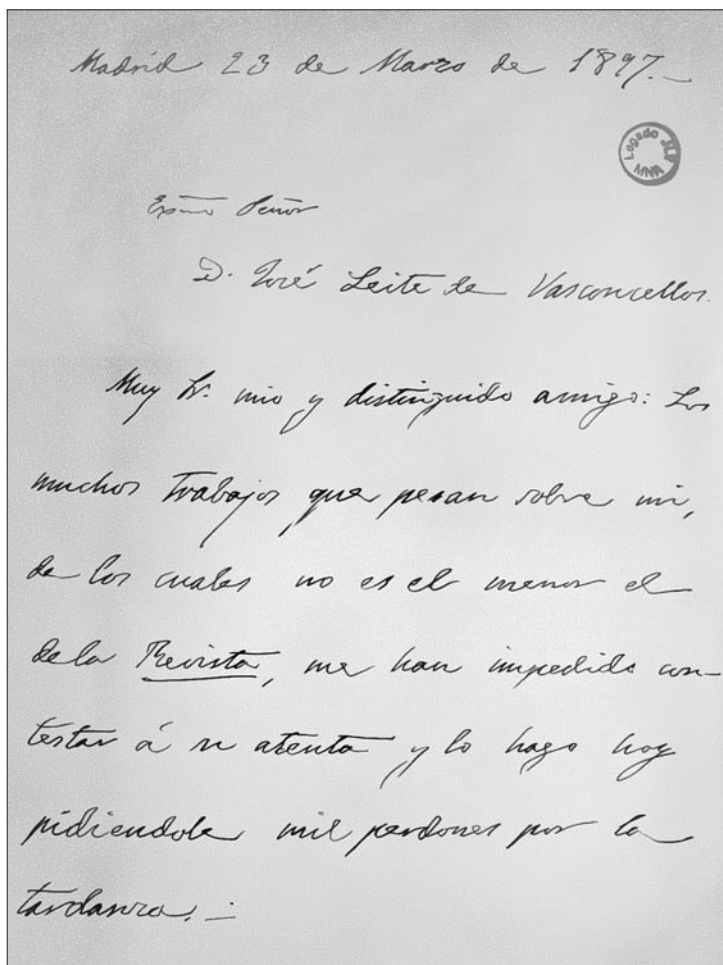 Madrid 23 de Marzo de 1897._
Legado JLV
MNA
Exmo Señor
D. José Leite de Vasconcellos.
Muy Sr. mio y distinguido amigo: Los
muchos trabajos que pesan sobre mi,
de los cuales no es el menor el
de la Revista, me han impedido con-
testar á su atenta y lo hago hoy
pidiendole mil perdones por la
tardanza. _